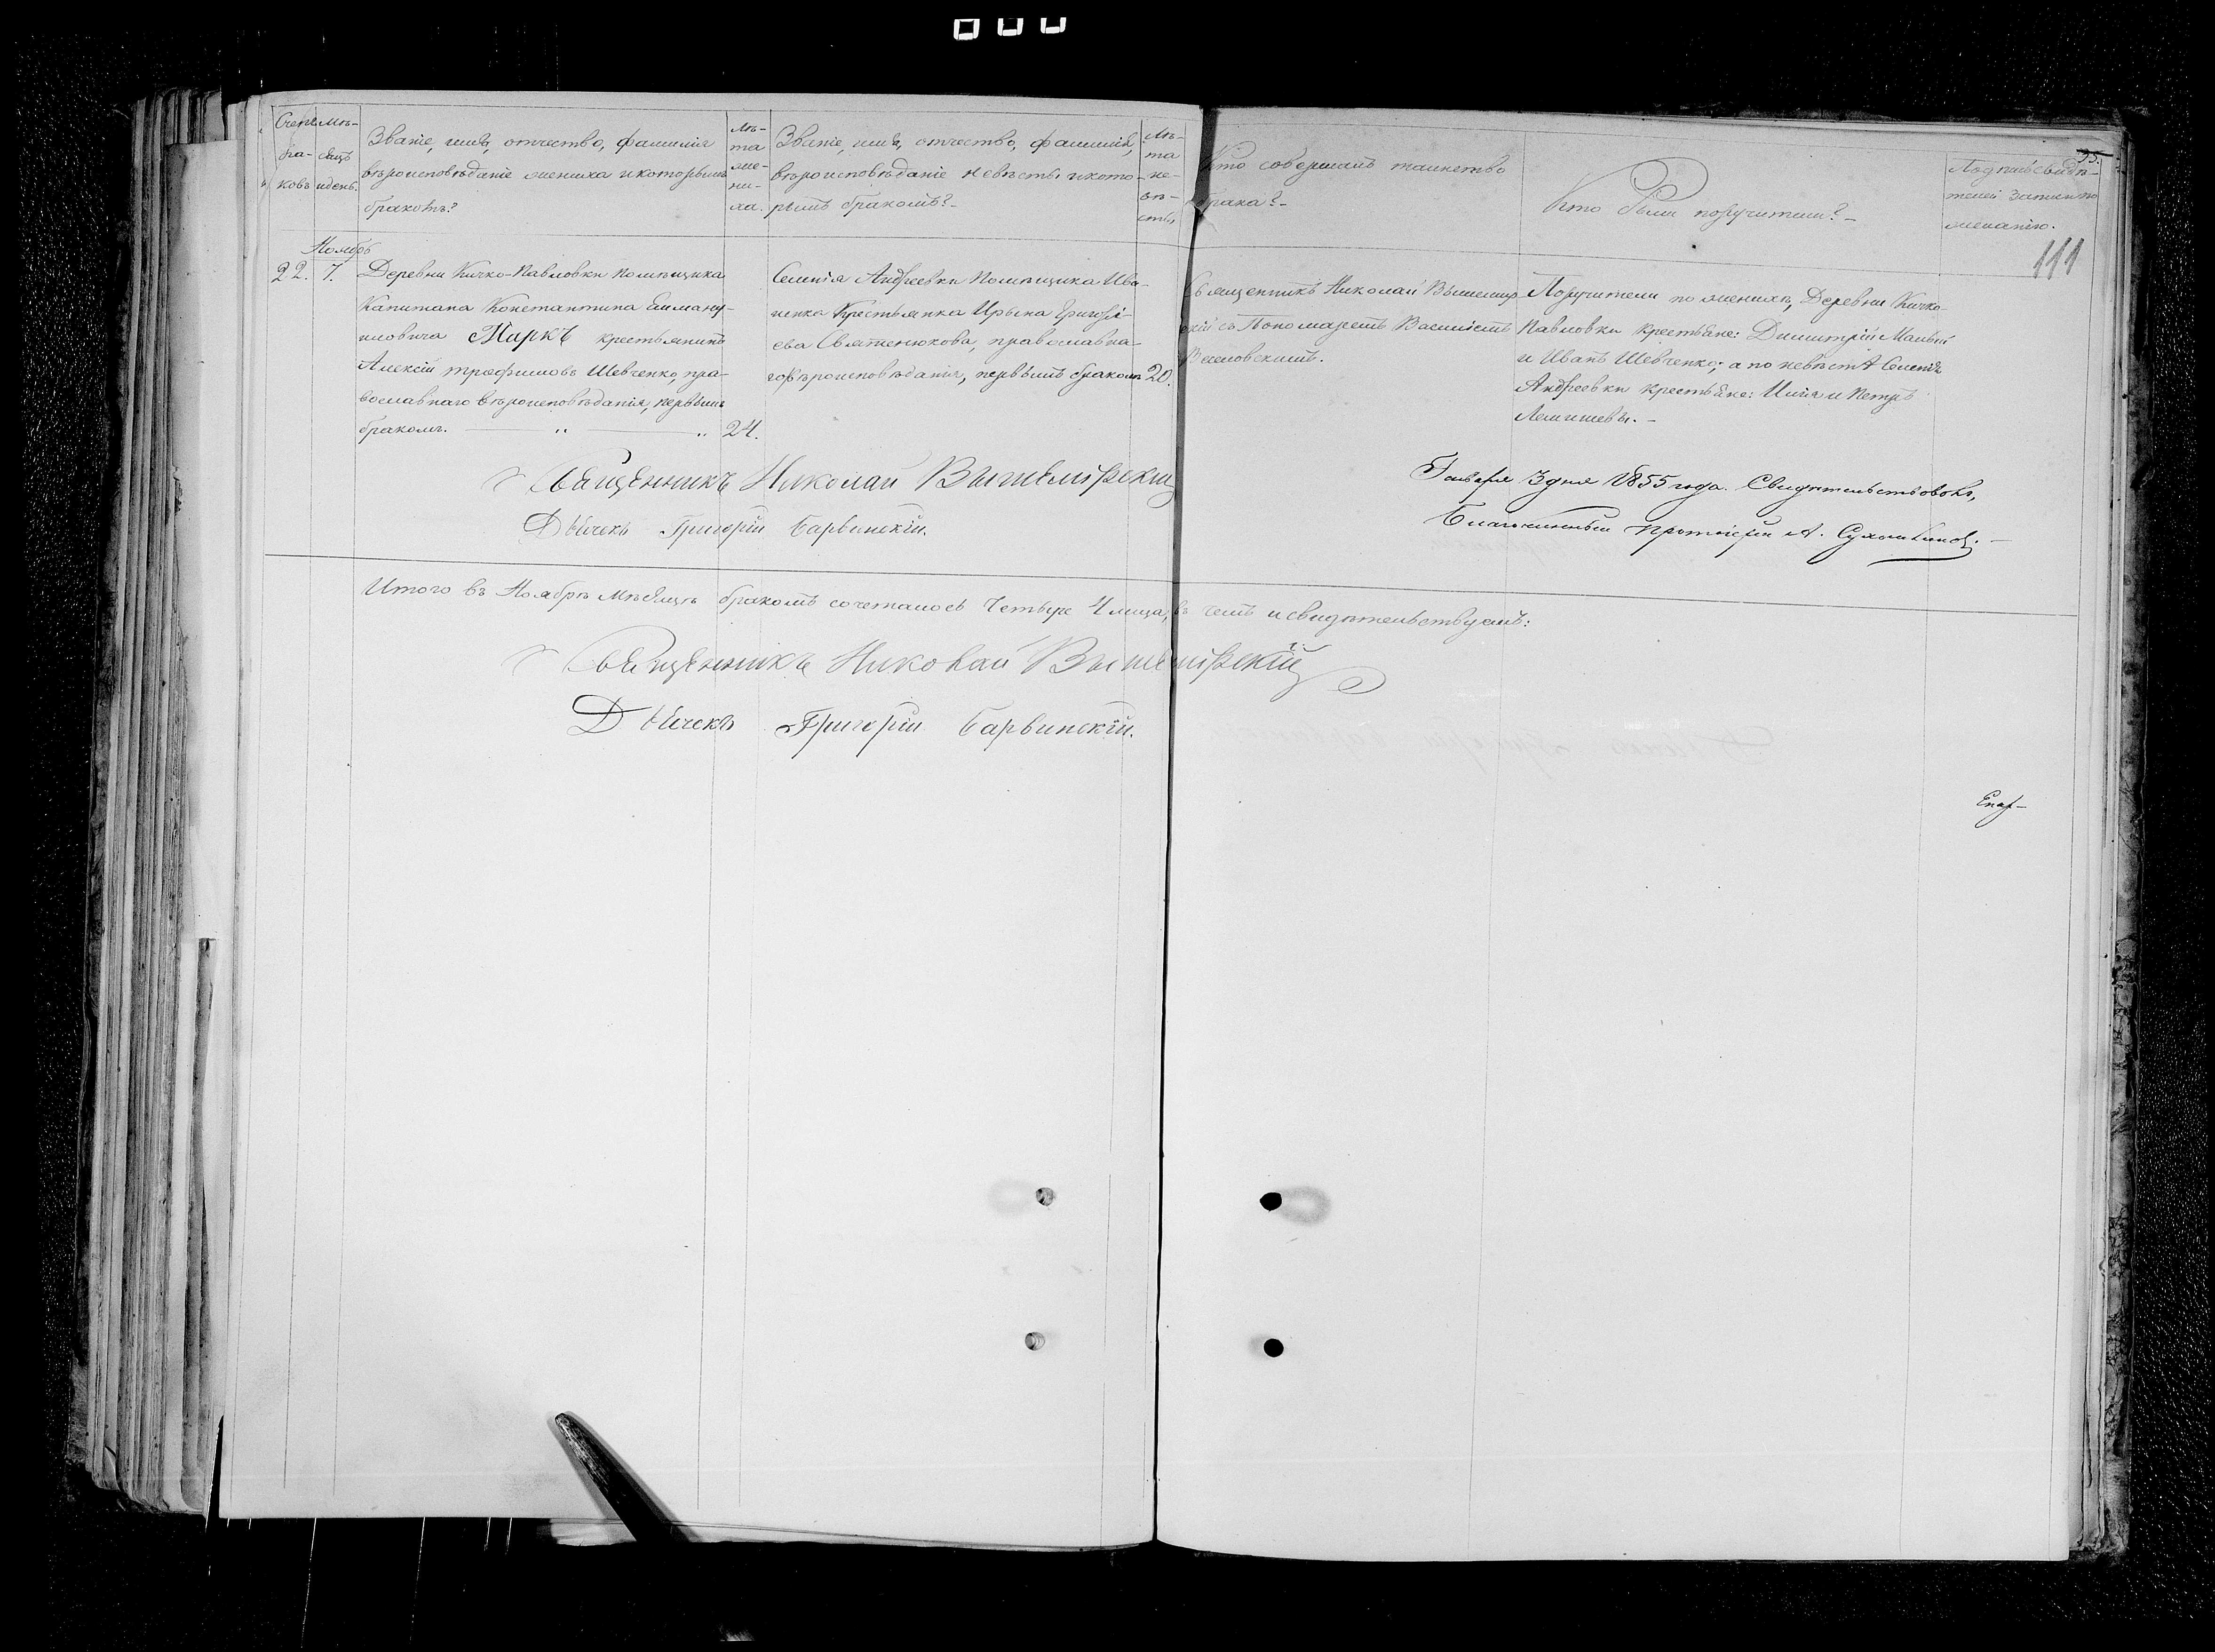 Счетъ бра-ковъ
Мѣ-сяцъ и день.
Званіе, имя, отчество, фамилія
вѣроисповѣданіе жениха и которымъ
бракомъ?
Лѣ-
та
же-
ни-
ха.
Званіе, имя, отчество, фамилія,
вѣроисповѣданіе невѣсты и кото-
рымъ бракомъ?-
Лѣ-
та
не-
вѣ-
сты
Кто совершалъ таинство
брака?-
Кто были поручители?-
Подписъ свидѣ-
телей записи по
желанію.
55.
111
Ноябрь
22. 7.
Деревни Кичко-Павловки помѣщика
Капитана Константина Емману-
иловича Маркъ крестьянинъ
Алексій Трофимовъ Шевченко, пра-
вославнаго вѣроисповѣданія, первымъ
бракомъ. 24.
Селенія Андреевки Помѣщика Ива-
ненка Крестьянка Ирына Григорі-
ева Святненюкова, православна-
го вѣроисповѣданія, первымъ бракомъ 20.
Священникъ Николай Вышемір-
скій съ Пономаремъ Василіемъ
Поручители по женихѣ, Деревни Кичко-
Павловки крестьяне: Димитрій Малый
и Иванъ Шевченко; а по невѣстѣ Селенія
Андреевки крестьяне: Илія и Петръ
Лемишевы.-
Священникъ Николай Вышемірскій
Дьячекъ Григорій Барвинскій.
Генваря 3 дня 1855 года. Свидѣтельствовалъ,
Благочинный Протоіерей А. Сухомлиновъ.-
Итого въ Ноябрѣ мѣсяцѣ бракомъ сочеталось Четыре 4 лица, въ чемъ и свидѣтельствуемъ:
Священникъ Николай Вышемірскій
Дьячекъ Григорій Барвинскій.
Епар-